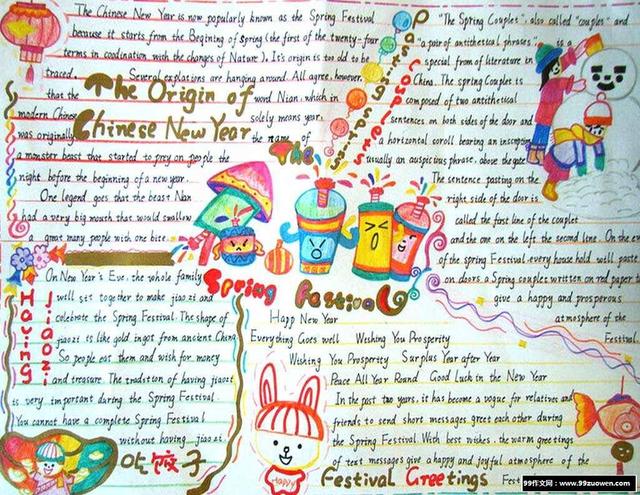 The Chinese New Year is now popularly known as the Spring Festival
because it starts from the Begining of Spring (the first of the twenty-four
terms in coodination with the changes of Nature). It's origin is too old to be
traced. Several explations are hanging around. All agree, however,
that the
word Nian, which in
modern Chinese
solely means year,
was originally
the name of
a monster beast that started to prey on people the
night before the beginning of a new year.
One legend goes that the beast Nian
had a very big mouth that would swallow
great many people with one bite.
The Origin of
Chinese New Year
The
Spring Festival
Pasting Spring
Couplets
"The Spring Couplet", also called "couplet" and
a pair of antithetical phrases, is a
special from of literature in
China. The spring Couplet is
composed of two antithetical
sentences on both sides of the door and
a horizontal scroll bearing an inscription,
usually an auspicious phrase, above the gate.
The sentence pasting on the
right side of the door is
called the first line of the couplet
and the one on the left the second line. On the eve
of the spring Festival, every house hold will paste
on doors a Spring couplet written on red paper
give a happy and prosperous
atmosphere of the
Festival.
Having
Jiaozi
On New Year's Eve, the whole family
well sit together to make jiaozi and
celebrate the Spring Festival. The shape of
jiaozi is like gold ingot from ancient China
So people eat them and wish for money
and treasure. The tradition of having jiaozi
is very important during the Spring Festival
You cannot have a complete Spring Festival
without having jiaozi.
吃饺子
Happ New Year
Everything Goes well Wishing You Prosperity
Wishing You Prosperity Surplus Year after Year
Peace All Year Round Good Luck in the New Year
In the past two years, it has become a vogue for relatives and
friends to send short messages greet each other during
the Spring Festival. With best wishes, the warm greetings
of text messages give a happy and joyful atmosphere of the
Fest
Festival Greetings
HAPPY
99作文网：www.99zuowen.com